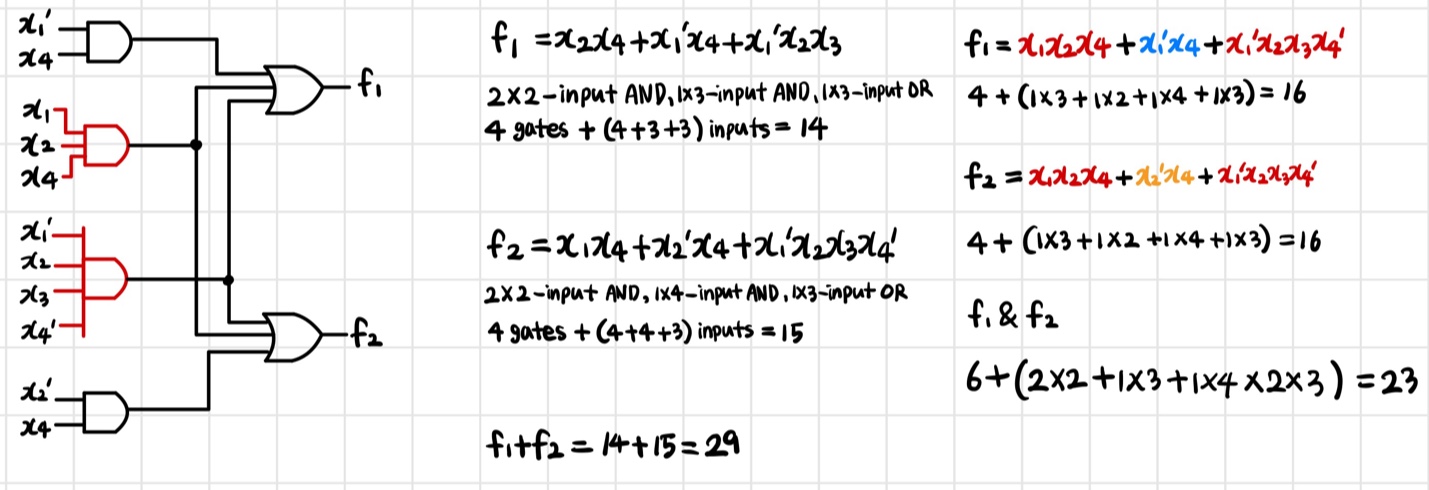 x₁'
x₄
x₁
x₂
x₄
x₁'
x₂
x₃
x₄'
x₂'
x₄
f₁
f₂
f₁ = x₂x₄+x₁'x₄+x₁'x₂x₃
2×2-input AND, 1×3-input AND, 1×3-input OR
4 gates + (4+3+3) inputs = 14
f₂ = x₁x₄+x₂'x₄+x₁'x₂x₃x₄'
2×2-input AND, 1×4-input AND, 1×3-input OR
4 gates + (4+4+3) inputs = 15
f₁+f₂ = 14+15 = 29
f₁ = x₁x₂x₄+x₁'x₄+x₁'x₂x₃x₄'
4 + (1×3+1×2+1×4+1×3) = 16
f₂ = x₁x₂x₄+x₂'x₄+x₁'x₂x₃x₄'
4 + (1×3+1×2+1×4+1×3) = 16
f₁ & f₂
6+(2×2+1×3+1×4×2×3) = 23